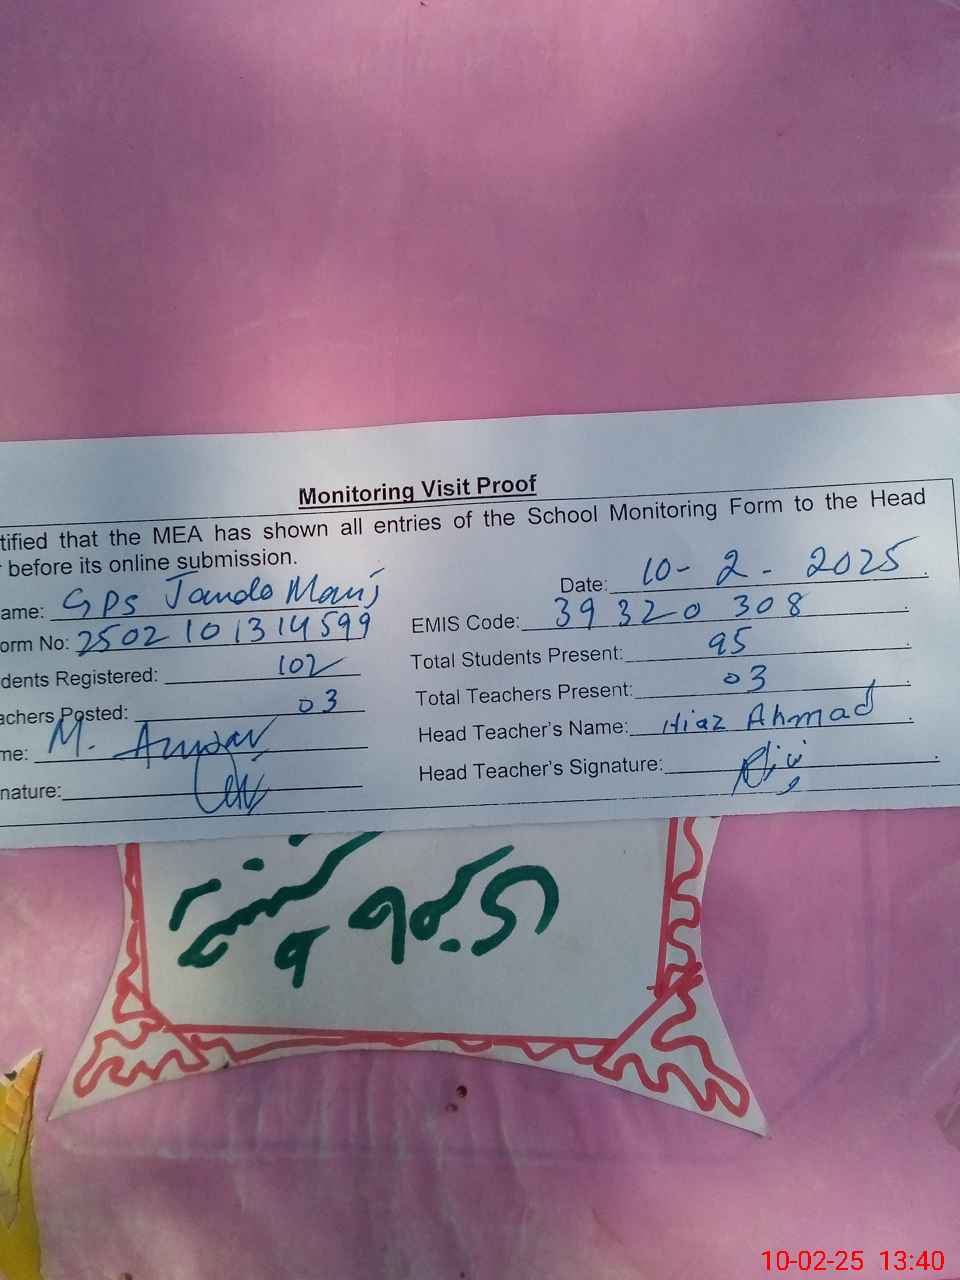 Monitoring Visit Proof
tified that the MEA has shown all entries of the School Monitoring Form to the Head
before its online submission.
ame: GPS Jando Date: 10-2-2025
orm No: 2502101314599 EMIS Code: 39320308
dents Registered: 102 Total Students Present: 95
achers Posted: 03 Total Teachers Present: 03
me: M. Anwar Head Teacher's Name: Hiaz Ahmad
nature: Head Teacher's Signature:
10-02-25 13:40